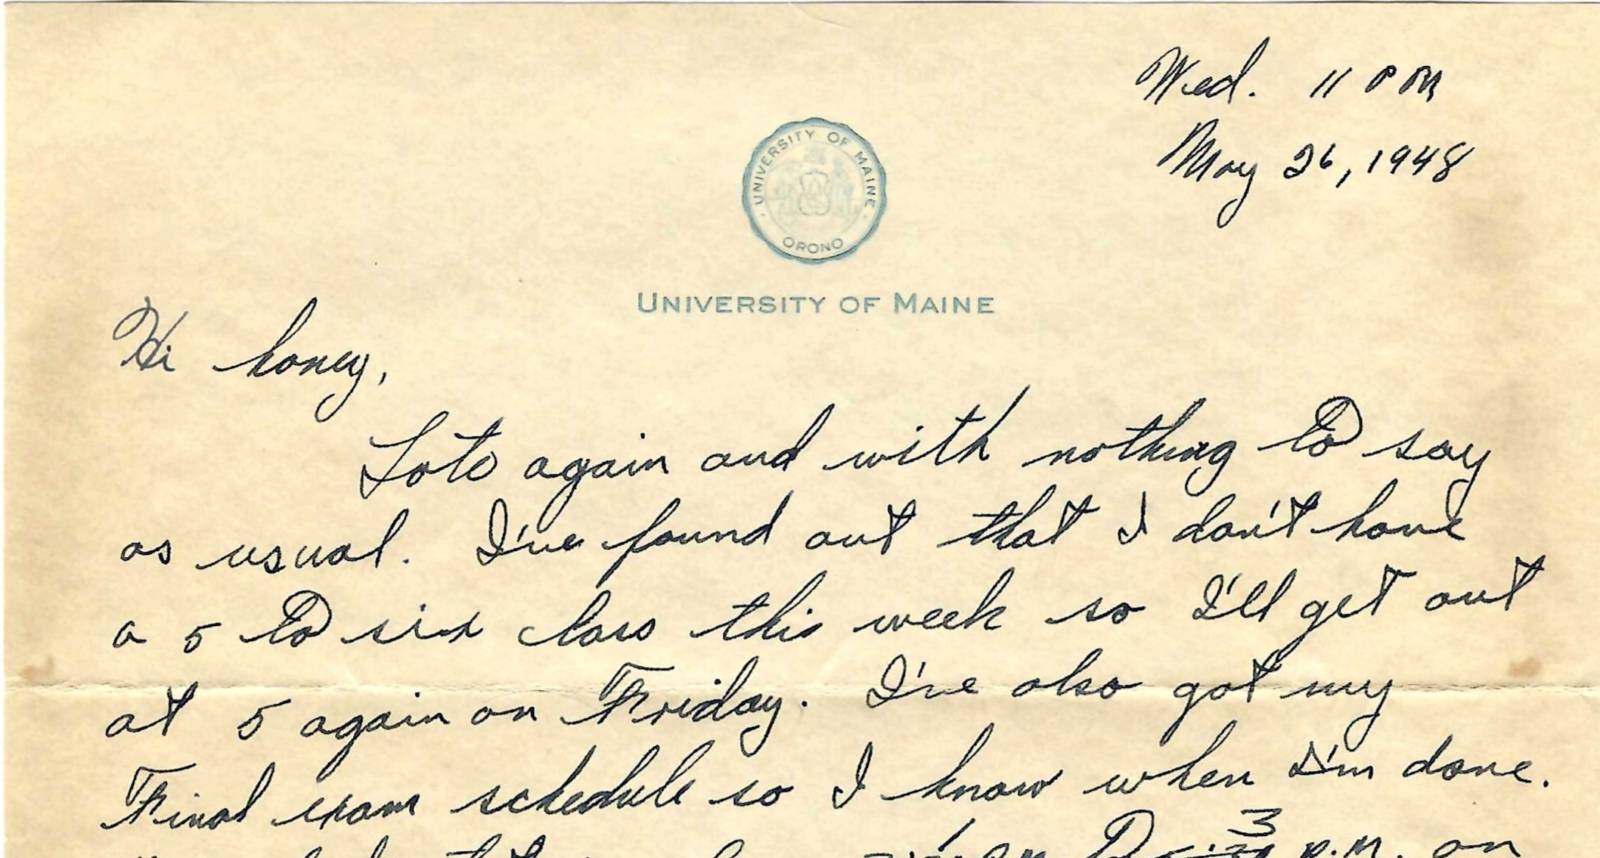 Wed. 11 PM
May 26, 1948
UNIVERSITY OF MAINE
ORONO
UNIVERSITY OF MAINE
Hi honey,
Late again and with nothing to say
as usual. I've found out that I don't have
a 5 to six class this week so I'll get out
at 5 again on Friday. I've also got my
Final exam schedule so I know when I'm done.
3
p.m. on